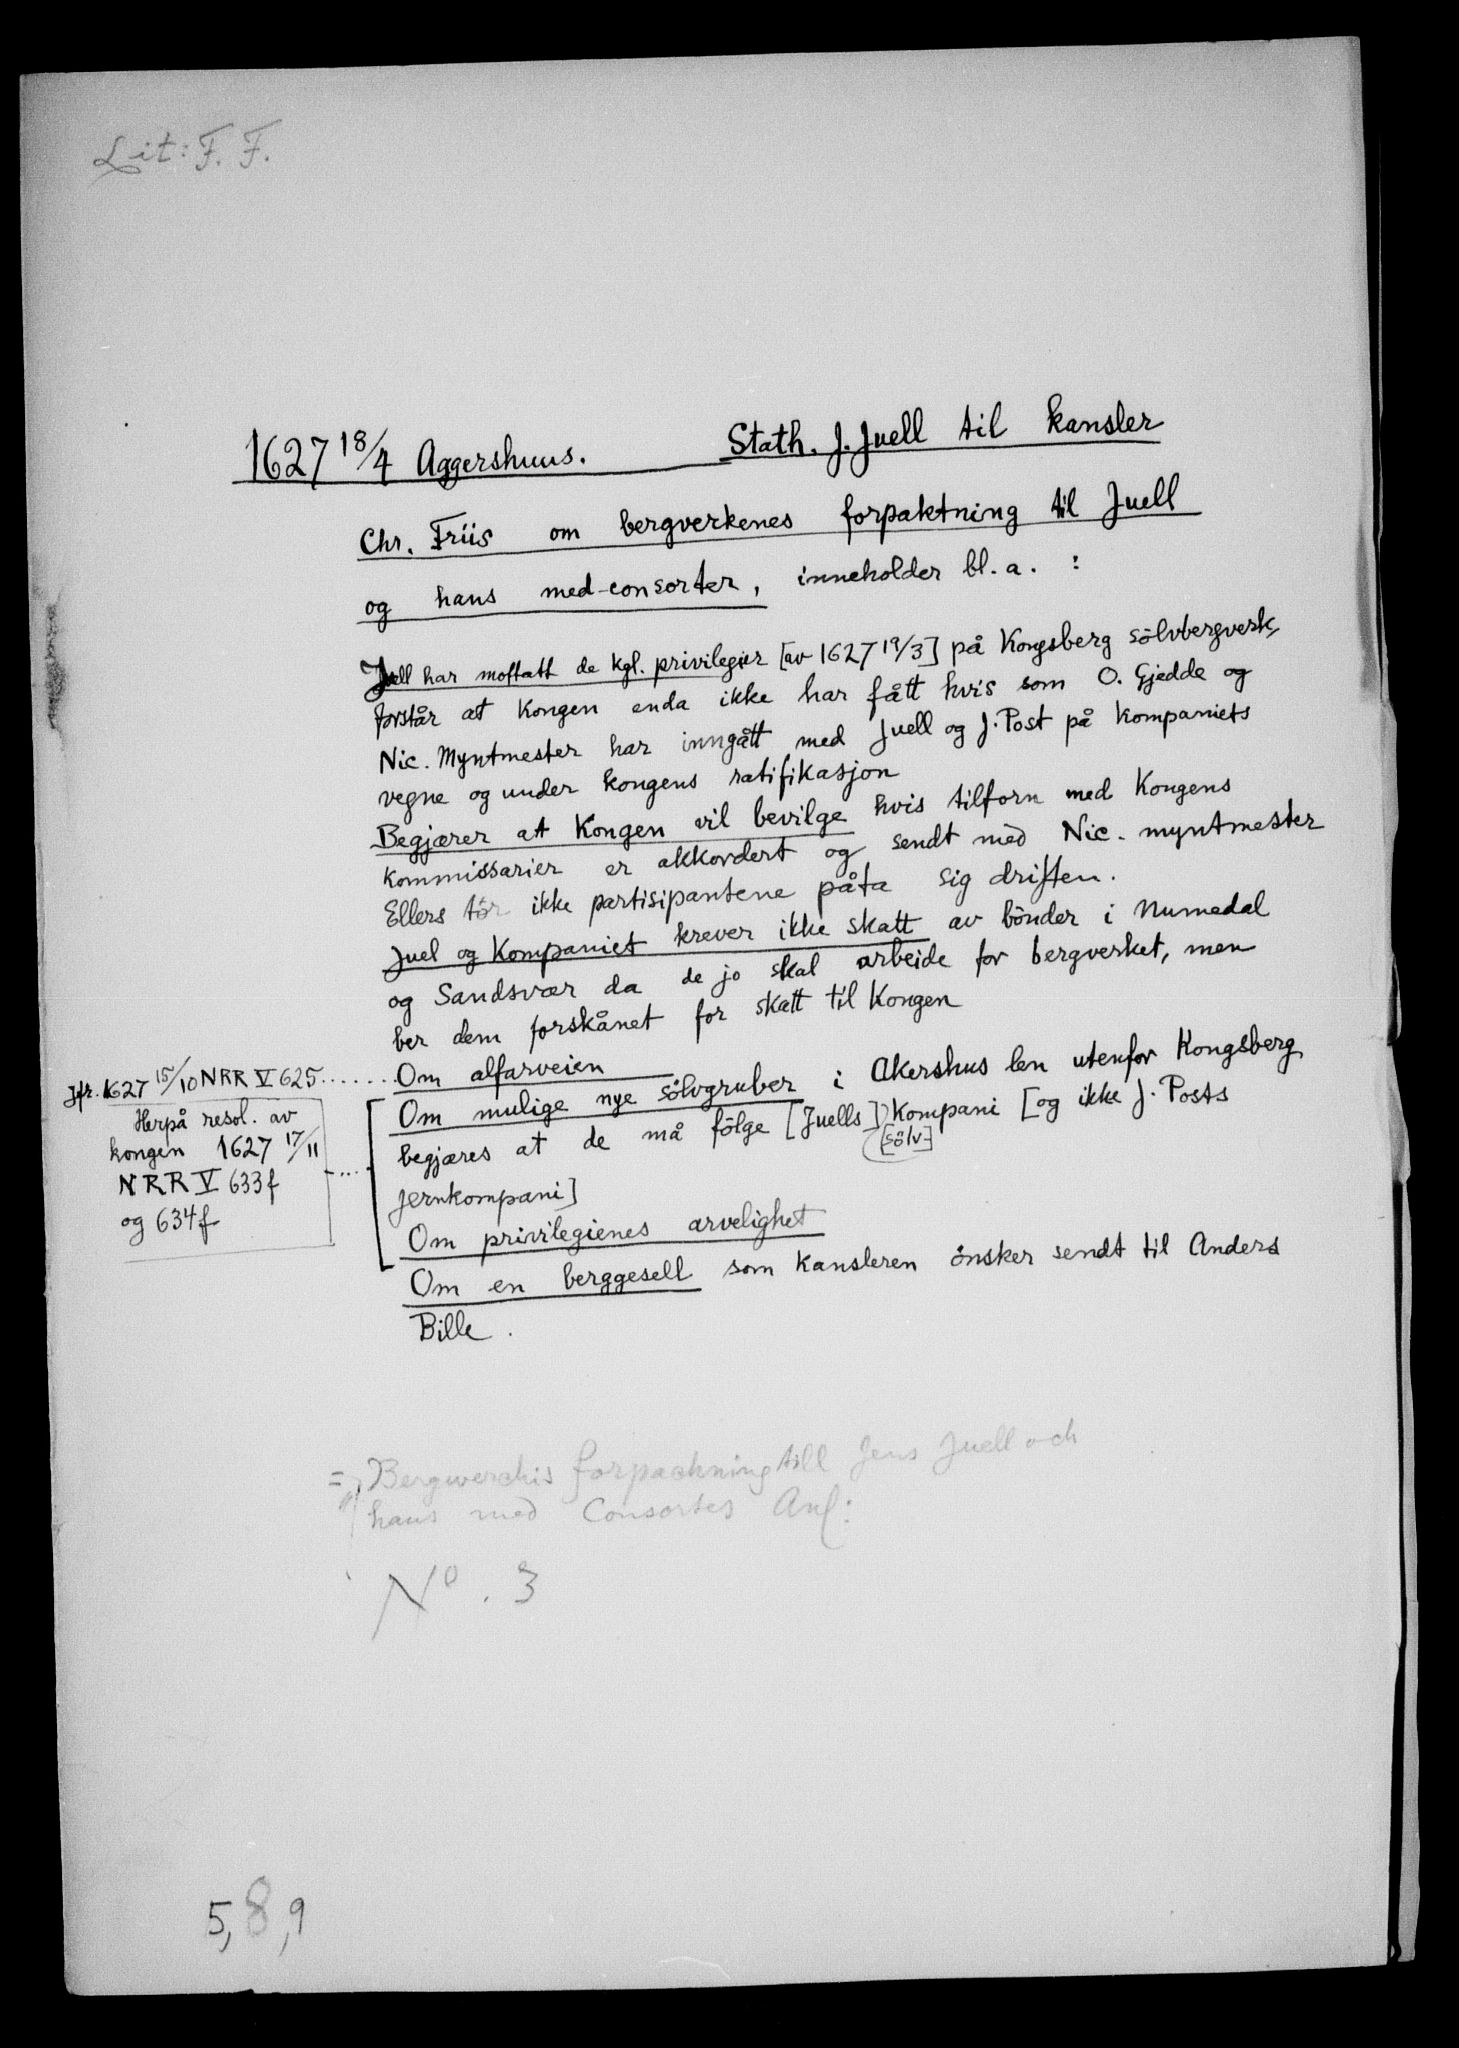 Lit: F. F.
1627 18/4 Aggershuus. Stath. J. Juell til kansler
Chr. Friis om bergverkenes forpaktning til Juell
og hans med-consorter, inneholder bl. a. :
Juell har mottatt de kgl. privilegier [av 1627 19/3] på Kongsberg sölvbergverk,
forstår at Kongen enda ikke har fått hvis som O. Gjedde og
Nic. Myntmester har inngått med Juell og J. Post på kompaniets
vegne og under kongens ratifikasjon
Begjærer at Kongen vil bevilge hvis tilforn med Kongens
kommissarier er akkordert og sendt med Nic. myntmester
Ellers tör ikke partisipantene påta sig driften.
Juel og Kompaniet krever ikke skatt av bönder i Numedal
og Sandsvær da de jo skal arbeide for bergverket, men
ber dem forskånet for skatt til Kongen
Jfr. 1627 15/10 NRR V 625 ....... Om alfarveien
Om mulige nye sölvgruber i Akershus len utenfor Kongsberg
begjæres at de må fölge [Juells] Kompani [og ikke J. Posts
[sölv-]
jernkompani]
Om privilegienes arvelighet
Om en berggesell som kansleren önsker sendt til Anders
Bille.
Herpå resol. av
kongen 1627 17/11
NRR V 633f
og 634f
= Bergwerckis forpachning till Jens Juell och
hans med Consortes Anl:
No. 3
5, 8, 9